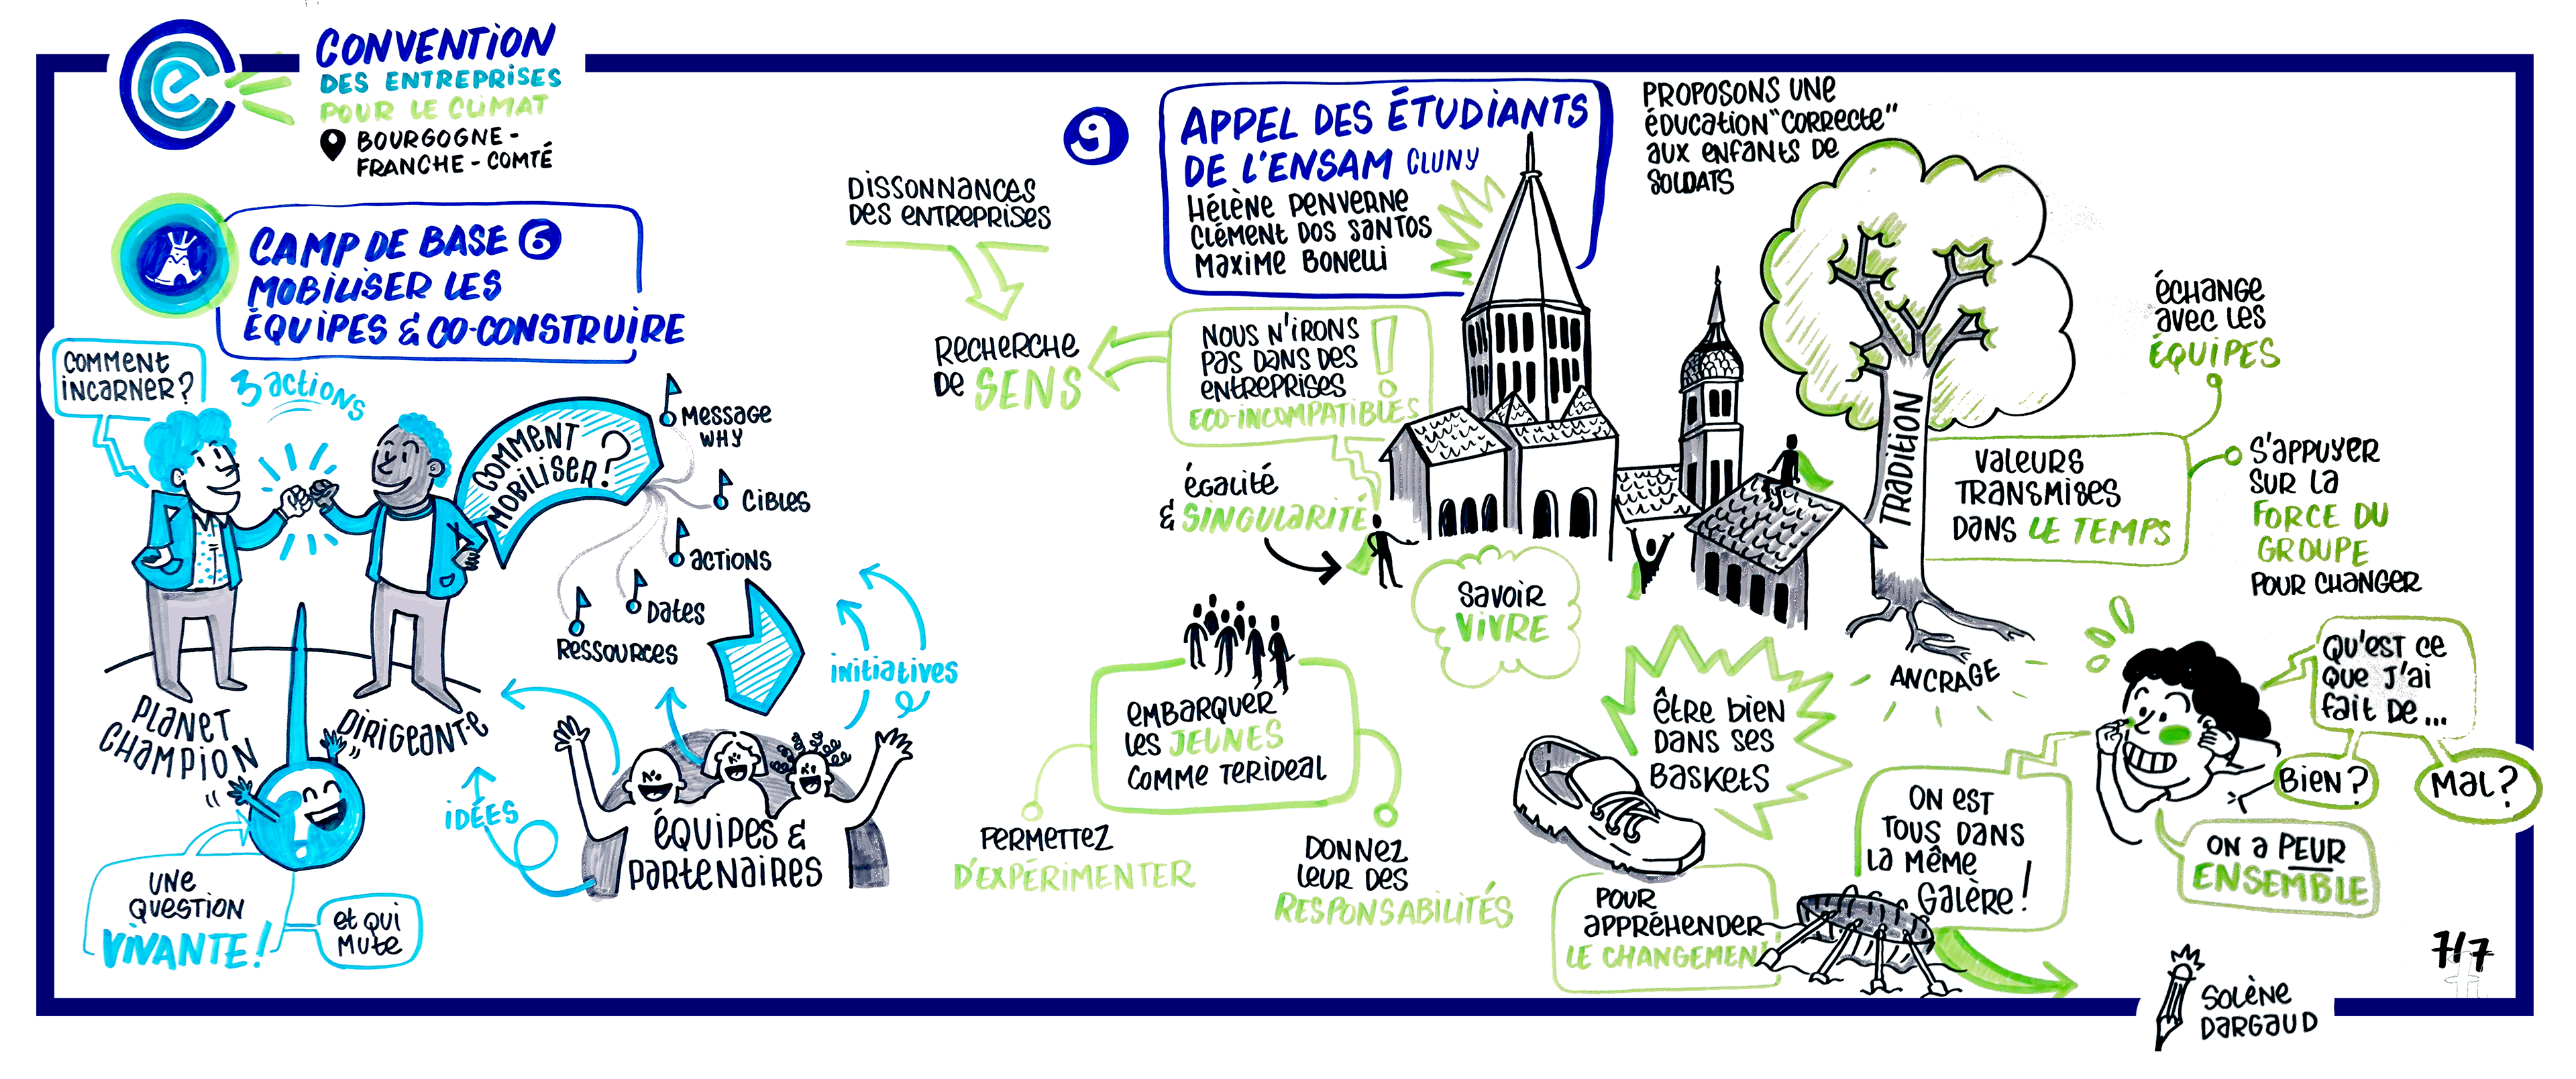 CONVENTION
DES ENTREPRISES
POUR LE CLIMAT
BOURGOGNE -
FRANCHE - COMTÉ
CAMP DE BASE 6
MOBILISER LES
ÉQUIPES & CO-CONSTRUIRE
COMMENT
INCARNER ?
3 actions
COMMENT
MOBILISER ?
MESSAGE
WHY
CIBLES
ACTIONS
DATES
RESSOURCES
PLANET
CHAMPION
DIRIGEANT·E
UNE
QUESTION
VIVANTE !
et qui
MUTE
IDÉES
initiatives
ÉQUIPES &
PARTENAIRES
DISSONNANCES
DES ENTREPRISES
RECHERCHE
DE SENS
9
APPEL DES ÉTUDIANTS
DE L'ENSAM CLUNY
HÉLÈNE PENVERNE
CLÉMENT DOS SANTOS
MAXIME BONELLI
NOUS N'IRONS
PAS DANS DES
ENTREPRISES
ECO-INCOMPATIBLES !
ÉGALITÉ
& SINGULARITÉ
SAVOIR
VIVRE
EMBARQUER
LES JEUNES
COMME TERIDEAL
PERMETTEZ
D'EXPÉRIMENTER
DONNEZ
LEUR DES
RESPONSABILITÉS
PROPOSONS UNE
ÉDUCATION "CORRECTE"
AUX ENFANTS DE
SOLDATS
TRADITION
ANCRAGE
VALEURS
TRANSMISES
DANS LE TEMPS
ÉCHANGE
AVEC LES
ÉQUIPES
S'APPUYER
SUR LA
FORCE DU
GROUPE
POUR CHANGER
ÊTRE BIEN
DANS SES
BASKETS
POUR
APPRÉHENDER
LE CHANGEMENT
ON EST
TOUS DANS
LA MÊME
GALÈRE !
QU'EST CE
QUE J'AI
FAIT DE ...
BIEN ?
MAL ?
ON A PEUR
ENSEMBLE
7/7
SOLÈNE
DARGAUD